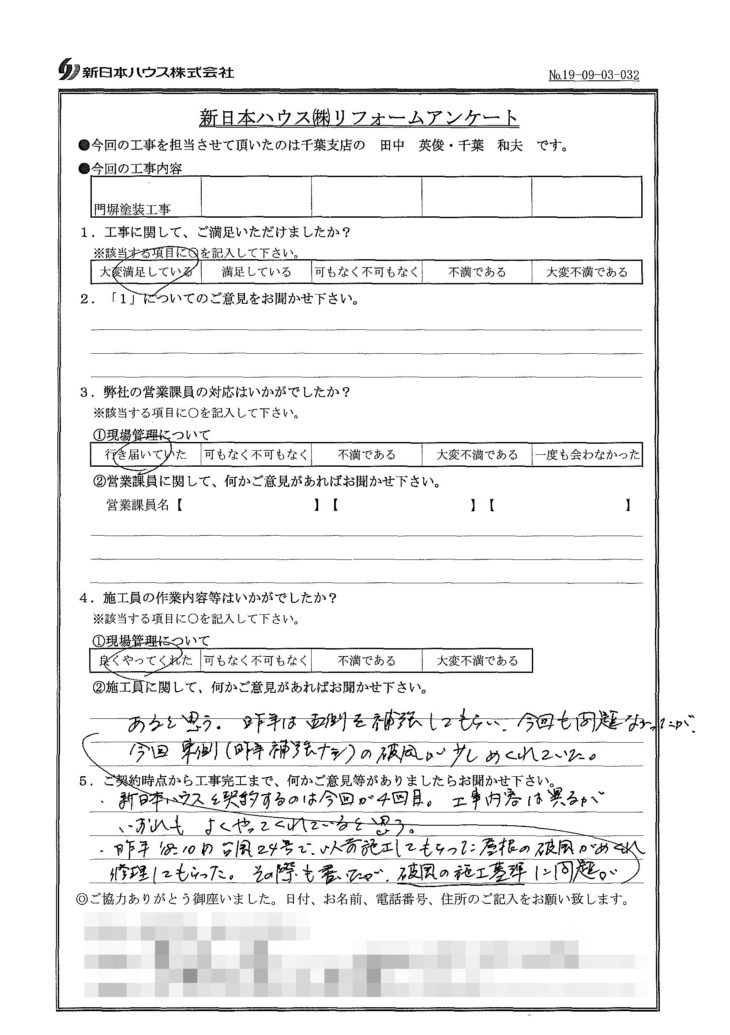 新日本ハウス株式会社
№19-09-03-032
新日本ハウス㈱リフォームアンケート
●今回の工事を担当させて頂いたのは千葉支店の 田中 英俊・千葉 和夫 です。
●今回の工事内容
門塀塗装工事
1．工事に関して、ご満足いただけましたか？
※該当する項目に○を記入して下さい。
大変満足している 満足している 可もなく不可もなく 不満である 大変不満である
2．「1」についてのご意見をお聞かせ下さい。
3．弊社の営業課員の対応はいかがでしたか？
※該当する項目に○を記入して下さい。
①現場管理について
行き届いていた 可もなく不可もなく 不満である 大変不満である 一度も会わなかった
②営業課員に関して、何かご意見があればお聞かせ下さい。
営業課員名【 】【 】【 】
4．施工員の作業内容等はいかがでしたか？
※該当する項目に○を記入して下さい。
①現場管理について
良くやってくれた 可もなく不可もなく 不満である 大変不満である
②施工員に関して、何かご意見があればお聞かせ下さい。
あると思う。昨年は西側を補強してもらい、今回も問題なかったが、
今回東側(昨年補強ナシ)の破風が少しめくれていた。
5．ご契約時点から工事完工まで、何かご意見等がありましたらお聞かせ下さい。
・新日本ハウスと契約するのは今回が4回目。工事内容は異るが
いずれもよくやってくれていると思う。
・昨年 10の台風24号で、以前施工してもらった屋根の破風がめくれ
修理してもらった。その際も書いたが、破風の施工基準に問題が
◎ご協力ありがとう御座いました。日付、お名前、電話番号、住所のご記入をお願い致します。